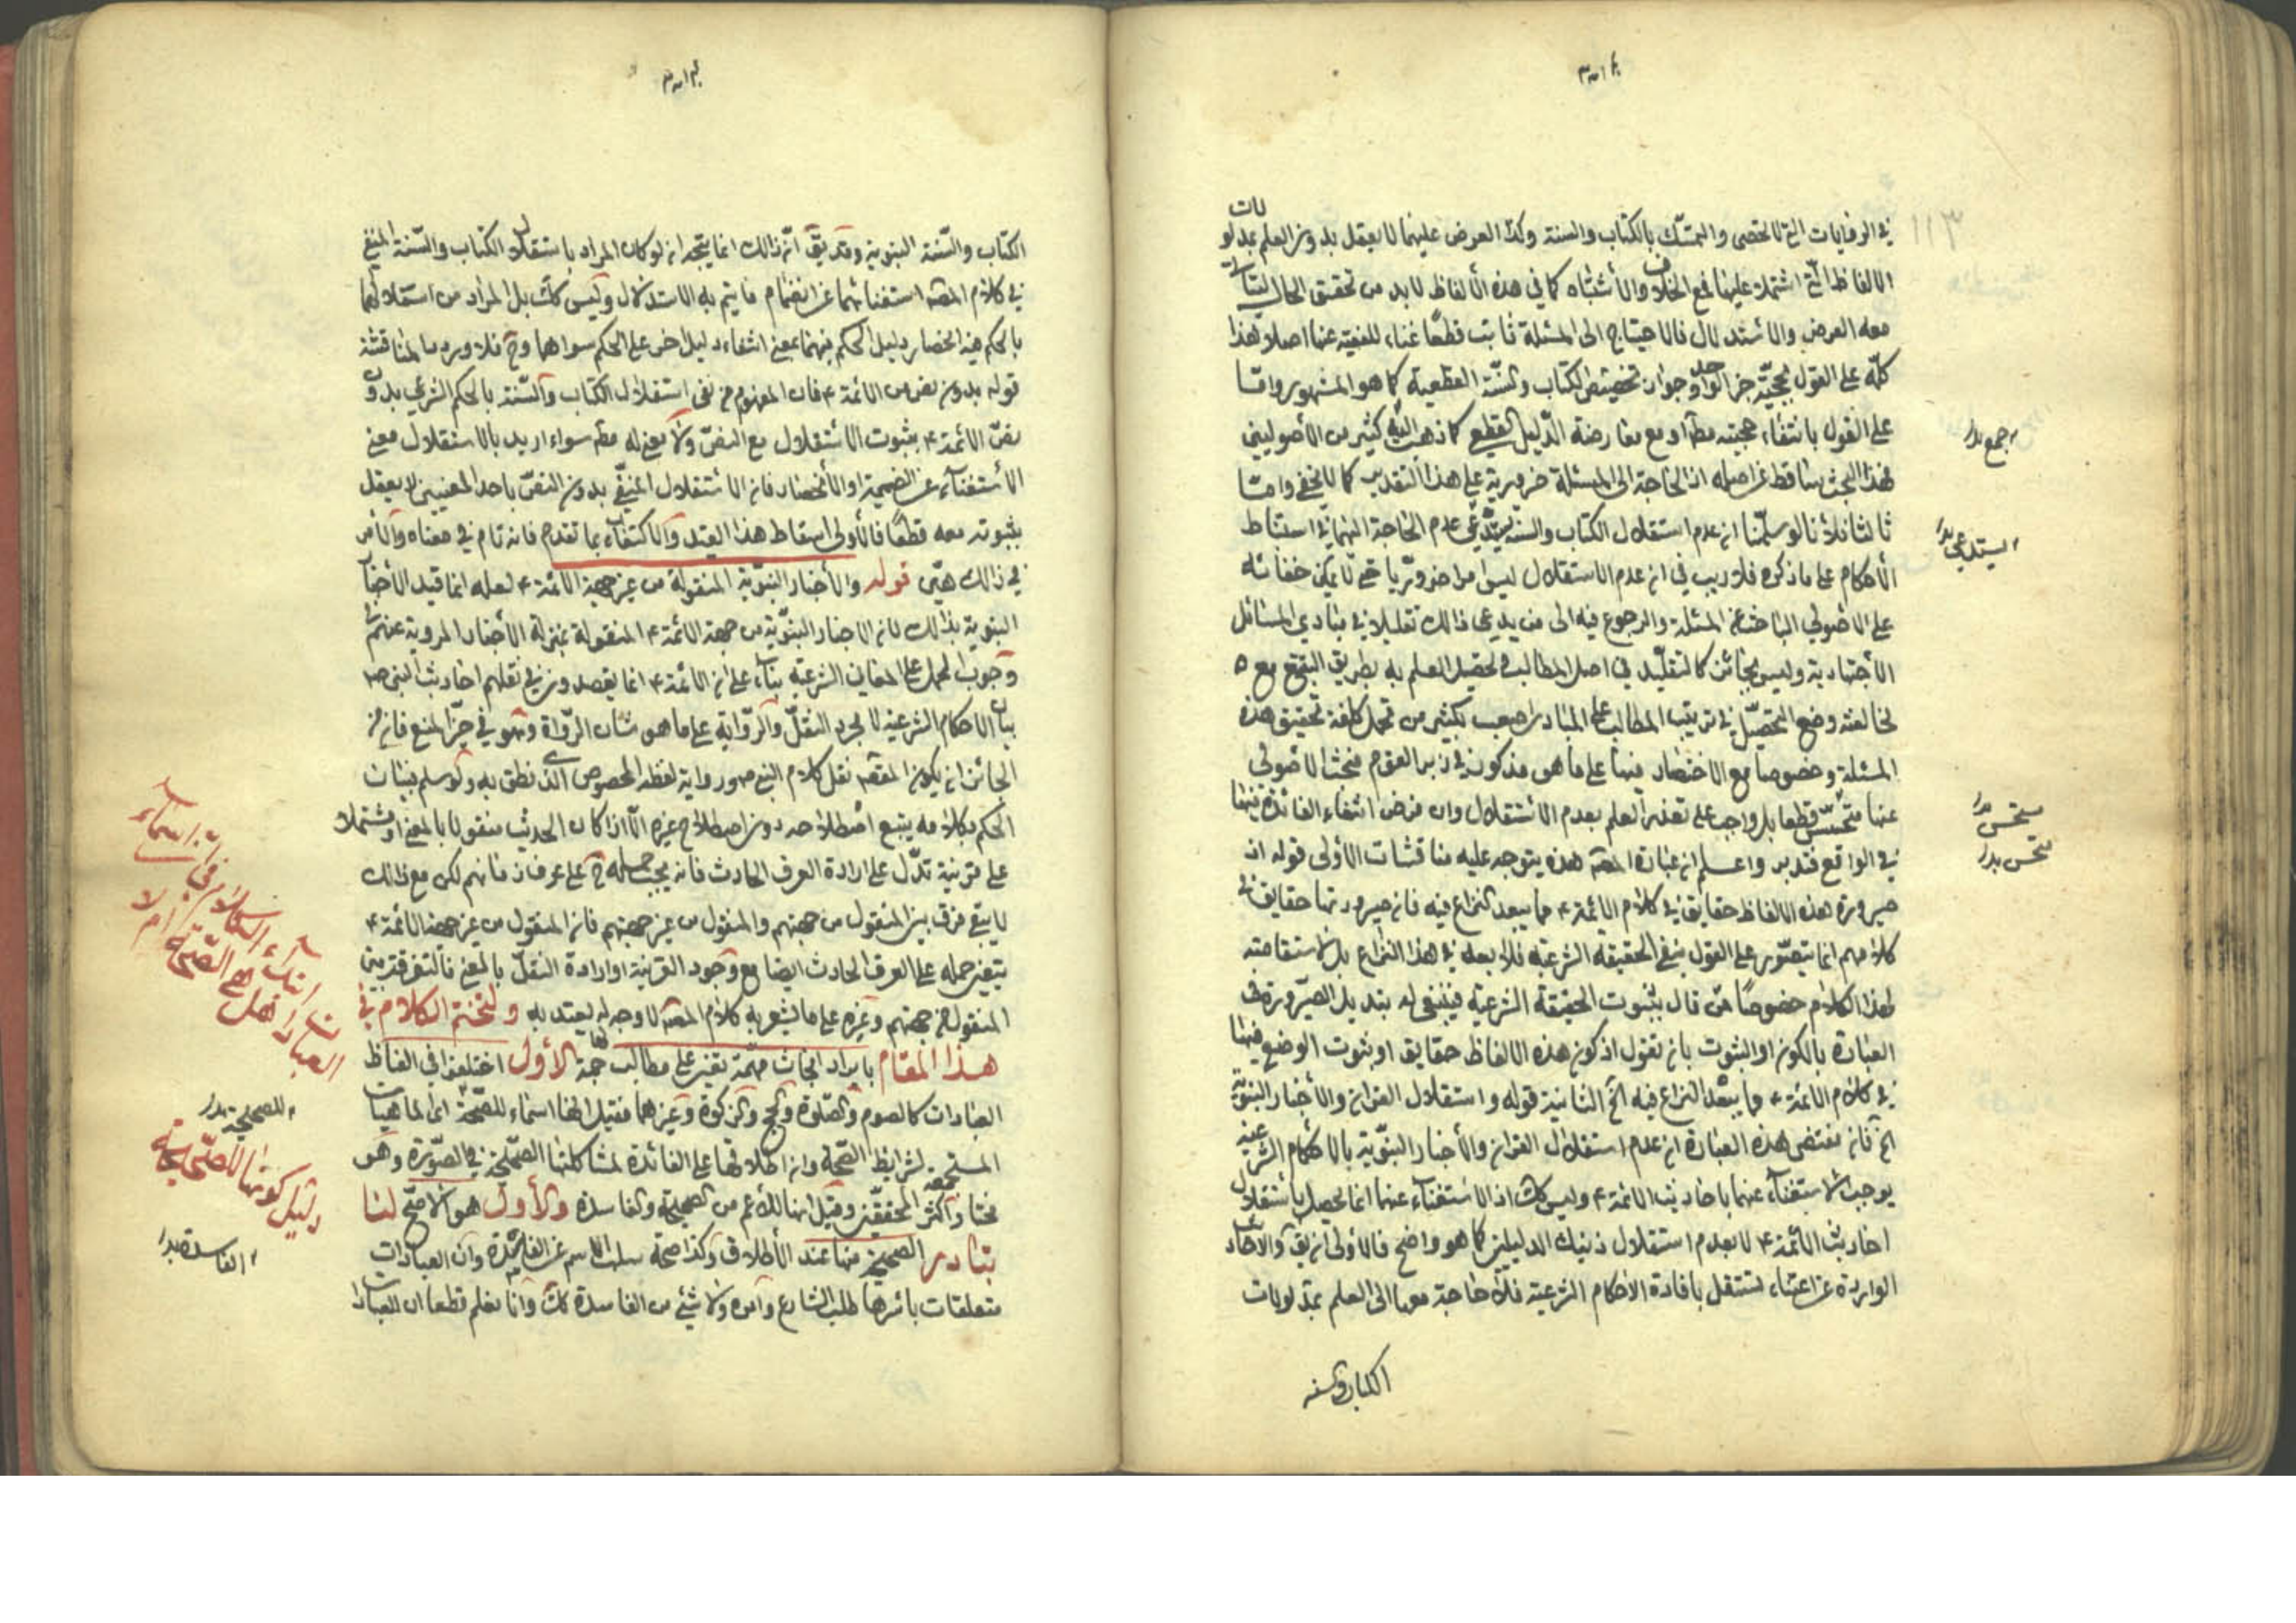 ١١٣
في الروايات التي لا تحصى والتمسّك بالكتاب والسنة وكذا العرض عليهما لا يعقل بدون العلم بمدلولات
الالفاظ التي اشتملا عليها فمع الخلاف والاشتباه كما في هذه الالفاظ لا بد من تحقيق الحال ليتأتى
معه العرض والاستدلال فالاحتياج الى المسئلة ثابت قطعًا غناء للفقيه عنها اصلا هذا
كلّه على القول بحجيّة خبر الواحد وجواز تخصيص الكتاب والسّنّة القطعية كما هو المشهور وامّا
على القول بانتفاء حجيته مطلقا او مع معارضة الدّليل القطعي كما ذهب اليه كثير من الأصوليين
فهذا البحث ساقط عن اصله اذ الحاجة الى المسئلة ضرورية على هذا التقدير كما لا يخفى وامّا
ثالثا فلأنا لو سلّمنا ان عدم استقلال الكتاب والسنة يستدعي عدم الحاجة اليهما في استنباط
الأحكام على ما ذكره فلا ريب في ان عدم الاستقلال ليس امرا ضروريّا حتى لا يمكن خفائه
على الاصولي الباحث عن المسئلة والرجوع فيه الى من يدعي ذالك تقليلا في مبادي المسائل
الأجتهادية وليس بجائز كالتقليد في اصل المطالب وتحصيل العلم به بطريق التتبع مع
مخالفته وضع التحصيل في ترتيب المطالب على المبادي اصعب بكثير من تحمل كلفة تحقيق هذه
المسئلة وخصوصا مع الاختصار فيها على ما هو مذكور في زبر القوم فبحث الاصولي
عنها متحسّن قطعا بل واجب على تقدير العلم بعدم الاستقلال وان فرض انتفاء الفائدة فيها
في الواقع فتدبر واعلم ان عبارة المص هذه يتوجه عليه مناقشات الأولى قوله ان
صيرورة هذه الالفاظ حقايق في كلام الائمة ع مما يبعد النزاع فيه فان صيرورتها حقايق في
كلامهم انما يتصّور على القول بنفي الحقيقة الشرعية فلا يعد في هذا النزاع بل لا استقامة
لهذا الكلام خصوصًا ممّن قال بثبوت الحقيقة الشرعية فينبغي له تبديل الصيرورة في
العبارة بالكون او الثبوت بان تقول اذ كون هذه الالفاظ حقايق او ثبوت الوضع فيها
في كلام الائمة ع مما يبعد النزاع فيه الخ الثانية قوله واستقلال القران والأخبار النبويّة
الخ فان مقتضى هذه العبارة ان عدم استقلال القران والأخبار النبّوية بالاحكام الشرعية
يوجب الاستغناء عنهما باحاديث الائمة ع وليس كك اذ الاستغناء عنهما انما يحصل باستقلال
احاديث الائمة ع لا بعدم استقلال ذينك الدليلين كما هو واضح فالاولى ان يق والاحاديث
الواردة عن ائمتنا تستقل بافادة الاحكام الشرعية فلا حاجة معها الى العلم بمدلولات
الكتاب والسنة
جمع بدل
يستدعي بدل
مستحسن بدل
متحسن بدل
الكتاب والسّنة النبوية وقد يق انّ ذالك انما يتجه ان لو كان المراد باستقلال الكتاب والسّنة المنفي
في كلام المص استغنائهما عن انضمام ما يتم به الاستدلال وليس كك بل المراد من استقلالهما
بالحكم هنا انحصار دليل الحكم فيهما بمعنى انتفاء دليل اخر على الحكم سواهما وح فلا ورد المناقشة
قوله بدون نص من الائمة ع فان المفهوم من نفي استقلال الكتاب والسّنة بالحكم الشرعي بدون
نصّ الائمة ع بثبوت الاستقلال مع النصّ ولا معنى له مطلقا سواء اريد بالاستقلال معنى
الاستغناء عن الضميمة او الانحصار فان الاستقلال المنفيّ بدون النصّ باحد المعنيين لا يعقل
بثبوته معه قطعًا فالأولى اسقاط هذا القيد والاكتفاء بما تقدم فانه تام في معناه والأمر
في ذالك هيّن قوله والأخبار النبويّة المنقولة من غير جهة الأئمة ع لعله انما قيد الأخبار
النبوية بذلك لان الاخبار النبويّة من جهة الائمة ع المنقولة بمنزلة الأخبار المروية عنهم في
وجوب الحمل على المعاني الشرعية بناء على ان الائمة ع انما يقصدون في نقلهم احاديث النبي ص
بيان الاحكام الشرعية لا مجرد النقل والرّواية على ما هو شان الرّواة وهو في حيّز المنع فان من
الجائز ان يكون المقصود نقل كلام النبي ص ورواية لفظه المخصوص الذي نطق به ولو سلم بيان
الحكم بكلامه يتبع اصطلاحه دون اصطلاح غيره الّا اذا كان الحديث منقولا بالمعنى او مشتملا
على قرينة تدّل على ارادة العرف الحادث فانه يجب حمله ح على عرف زمانهم لكن مع ذالك
لا يبقى فرق بين المنقول من جهتهم والمنقول من غير جهتهم فان المنقول من غير جهة الائمة ع
يتعين حمله على العرف الحادث ايضا مع وجود القرينة او ارادة النقل بالمعنى فالتفرقة بين
المنقول من جهتهم وغيره على ما يشعر به كلام المص لا وجه له يعتد به ولنختم الكلام في
هذا المقام بايراد ابحاث مهمة تفتقر على مطالب جمة الأول اختلفوا في الفاظ
العبادات كالصوم والصّلوة والحج والزكوة وغيرهما فقيل انها اسماء للصحّة اي لماهيات
المستجمعة لشرايط الصحّة وان اطلاقها على الفائدة لمشاكلتها الصحّيحة في الصّورة وهو
مختار اكثر المحققين وقيل انها للأعم من الصحيحة والفاسدة والأول هو الاصحّ لنا
تبادر الصحيحة منها عند الأطلاق وكذا صحة سلب الاسم عن الفاسدة وان العبادات
متعلقات باسرها طلب الشارع وامره ولا شيء من الفاسدة كك وانا نعلم قطعا ان العبادات
ابتداء الكلام في ان اسماء
العبادات هل هي الصّحيحة ام لا
للصحيحة بدل
دليل كونها للصّحيحة
الفاسدة بدل